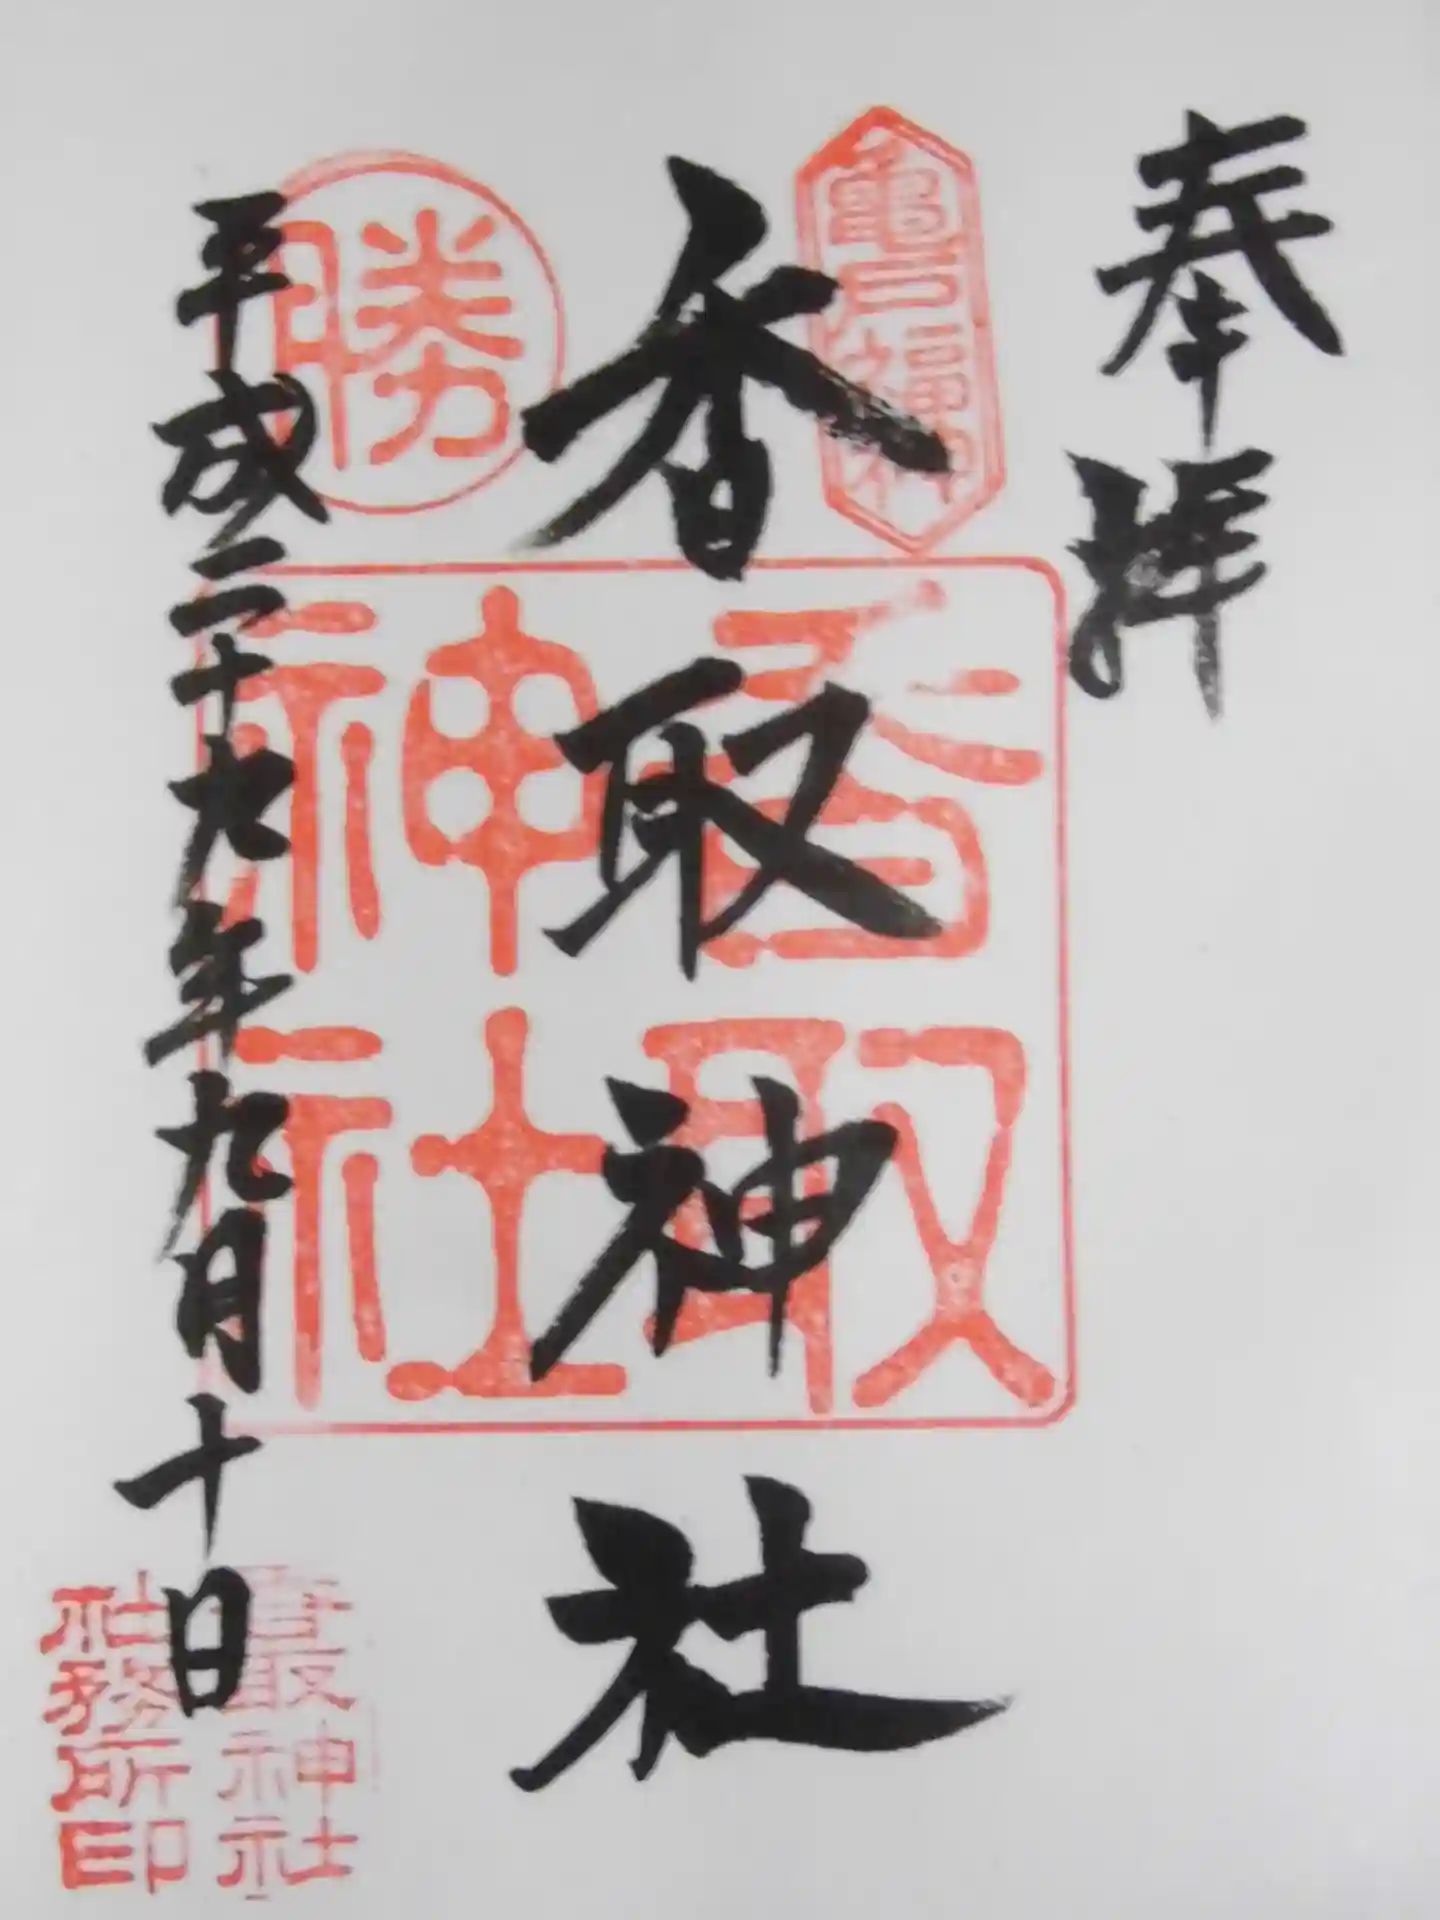 奉拝
亀戸福神
香取神社
香取
神社
勝
平成二十九年九月十日
香取神社
社務所印